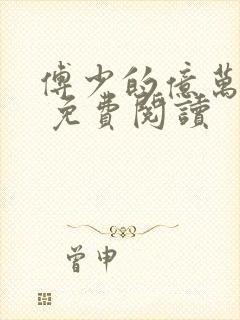 傅少的億萬
免費閱讀
曾申